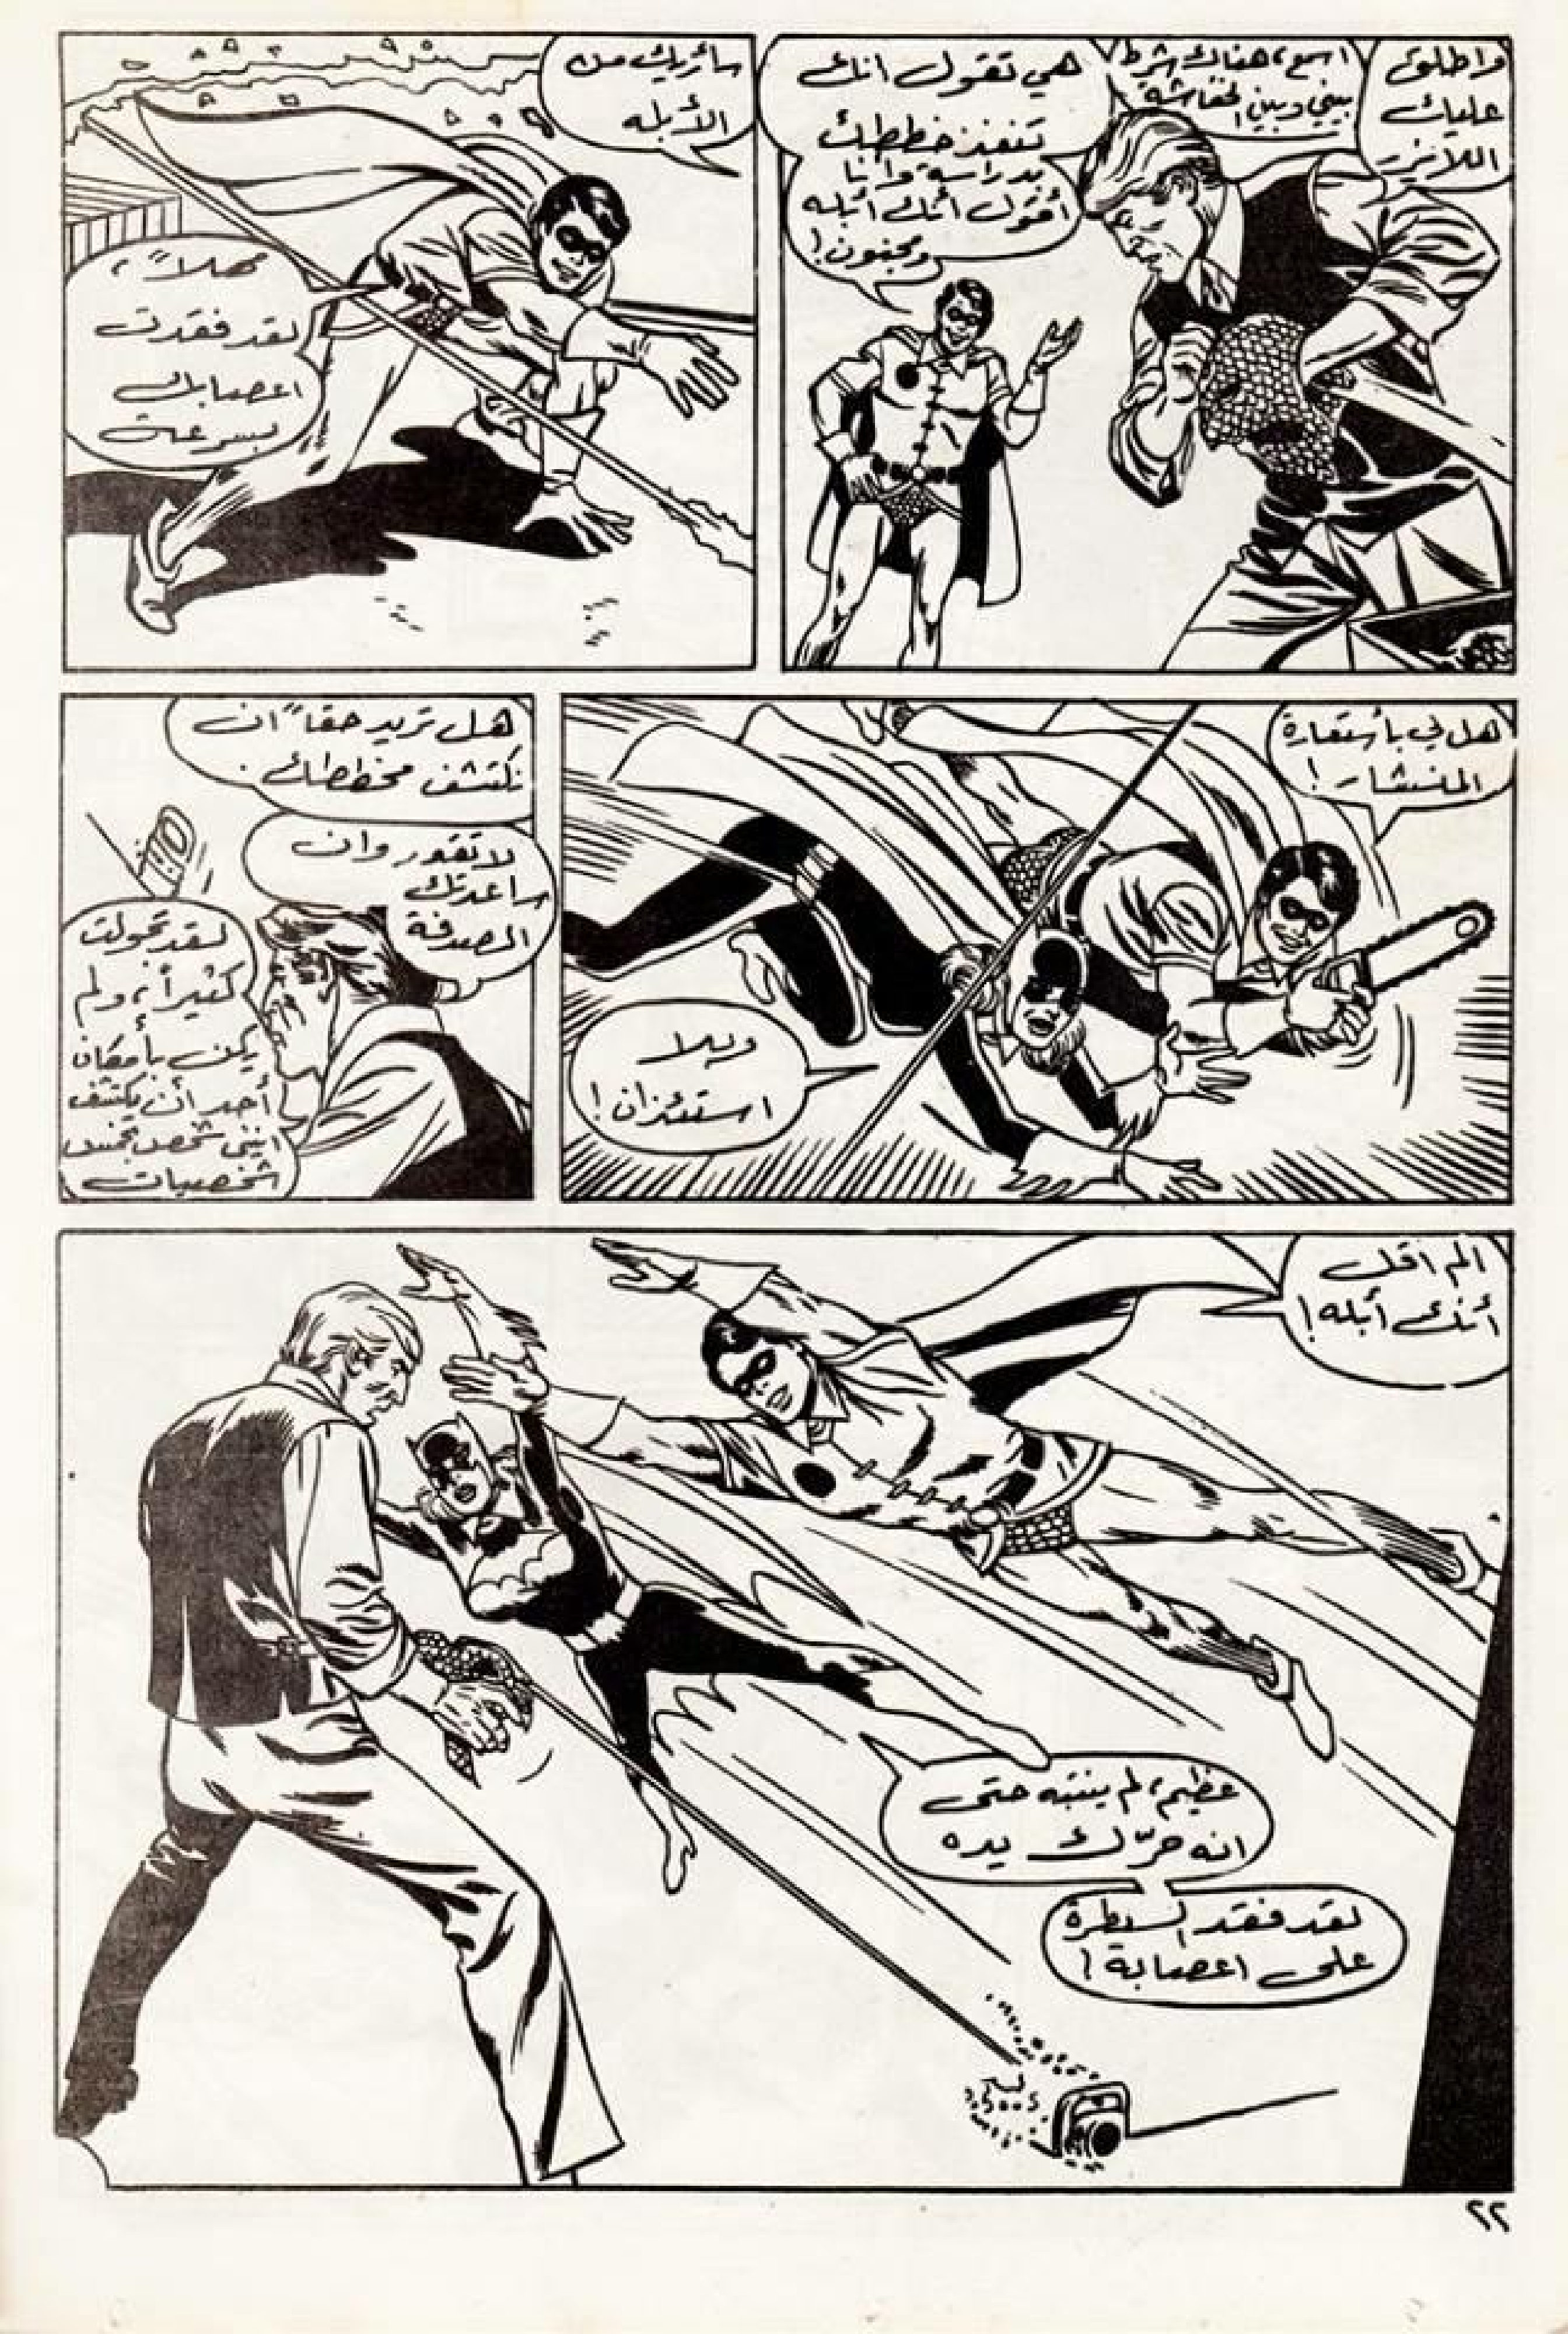 واطلق
عليك
اللايزر
اسمع، هناك شرط
بيني وبين الخفاشة
هي تقول انك
تنفذ خططك
بدراسة وانا
أقول انك أبله
ومجنون!
سأريك من
الأبله
مهلاً،
لقد فقدت
اعصابك
بسرعة
هل لي بأستعارة
المنشار!
وبلا
استئذان!
هل تريد حقاً ان
نكتشف مخططك.
لا تغتر وان
ساعدتك
الصدفة
لقد تجولت
كثيراً، ولم
يكن بأمكان
أحد أن يكتشف
انني شخص بخمس
شخصيات
الم اقل
أنك أبله!
عظيم، لم ينتبه حتى
انه حرّك يده
لقد فقد السيطرة
على اعصابة!
٢٢